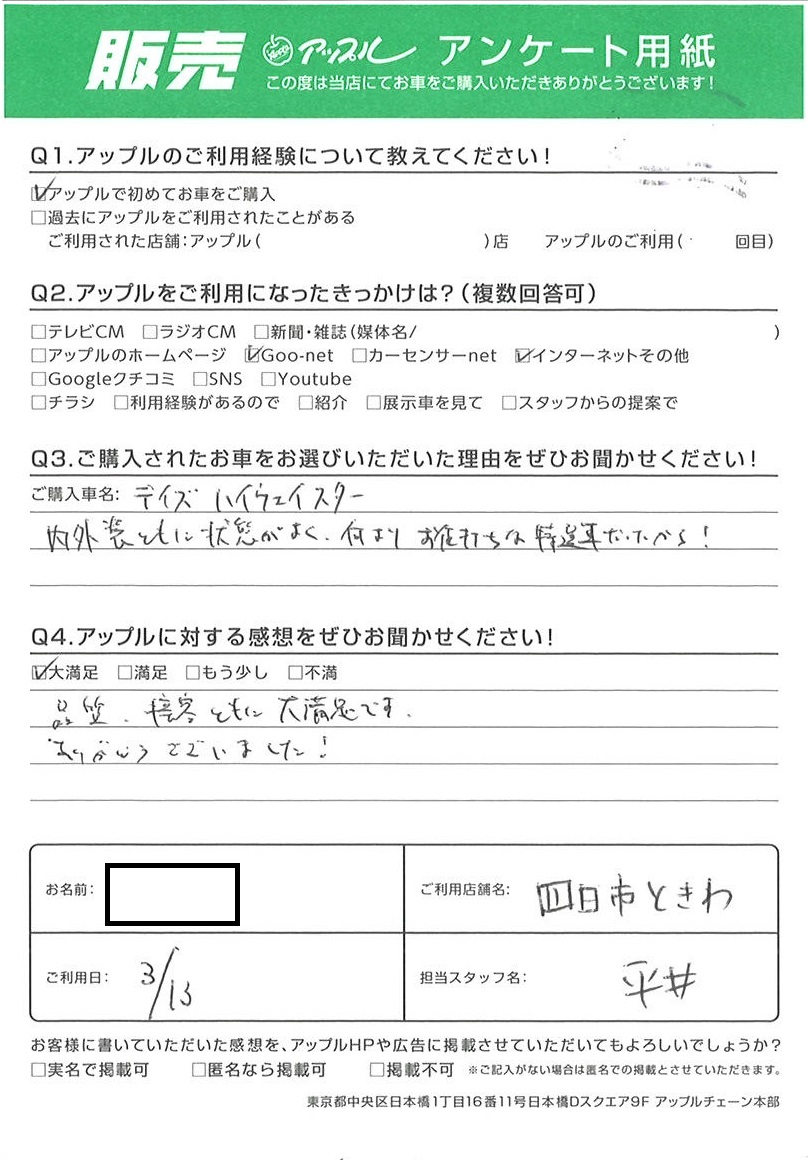 販売 アップル アンケート用紙
この度は当店にてお車をご購入いただきありがとうございます!
Q1.アップルのご利用経験について教えてください!
☑アップルで初めてお車をご購入
□過去にアップルをご利用されたことがある
ご利用された店舗:アップル( )店 アップルのご利用( 回目)
Q2.アップルをご利用になったきっかけは?(複数回答可)
□テレビCM □ラジオCM □新聞・雑誌(媒体名/ )
□アップルのホームページ ☑Goo-net □カーセンサーnet ☑インターネットその他
□Googleクチコミ □SNS □Youtube
□チラシ □利用経験があるので □紹介 □展示車を見て □スタッフからの提案で
Q3.ご購入されたお車をお選びいただいた理由をぜひお聞かせください!
ご購入車名: デイズ ハイウェイスター
内外装ともに状態がよく、何より お値打ちな特選車だったから!
Q4.アップルに対する感想をぜひお聞かせください!
☑大満足 □満足 □もう少し □不満
品質、接客ともに大満足です。
ありがとうございました!
お名前:
ご利用店舗名: 四日市ときわ
ご利用日: 3/13
担当スタッフ名: 平井
お客様に書いていただいた感想を、アップルHPや広告に掲載させていただいてもよろしいでしょうか?
□実名で掲載可 □匿名なら掲載可 □掲載不可 ※ご記入がない場合は匿名での掲載とさせていただきます。
東京都中央区日本橋1丁目16番11号日本橋Dスクエア9F アップルチェーン本部